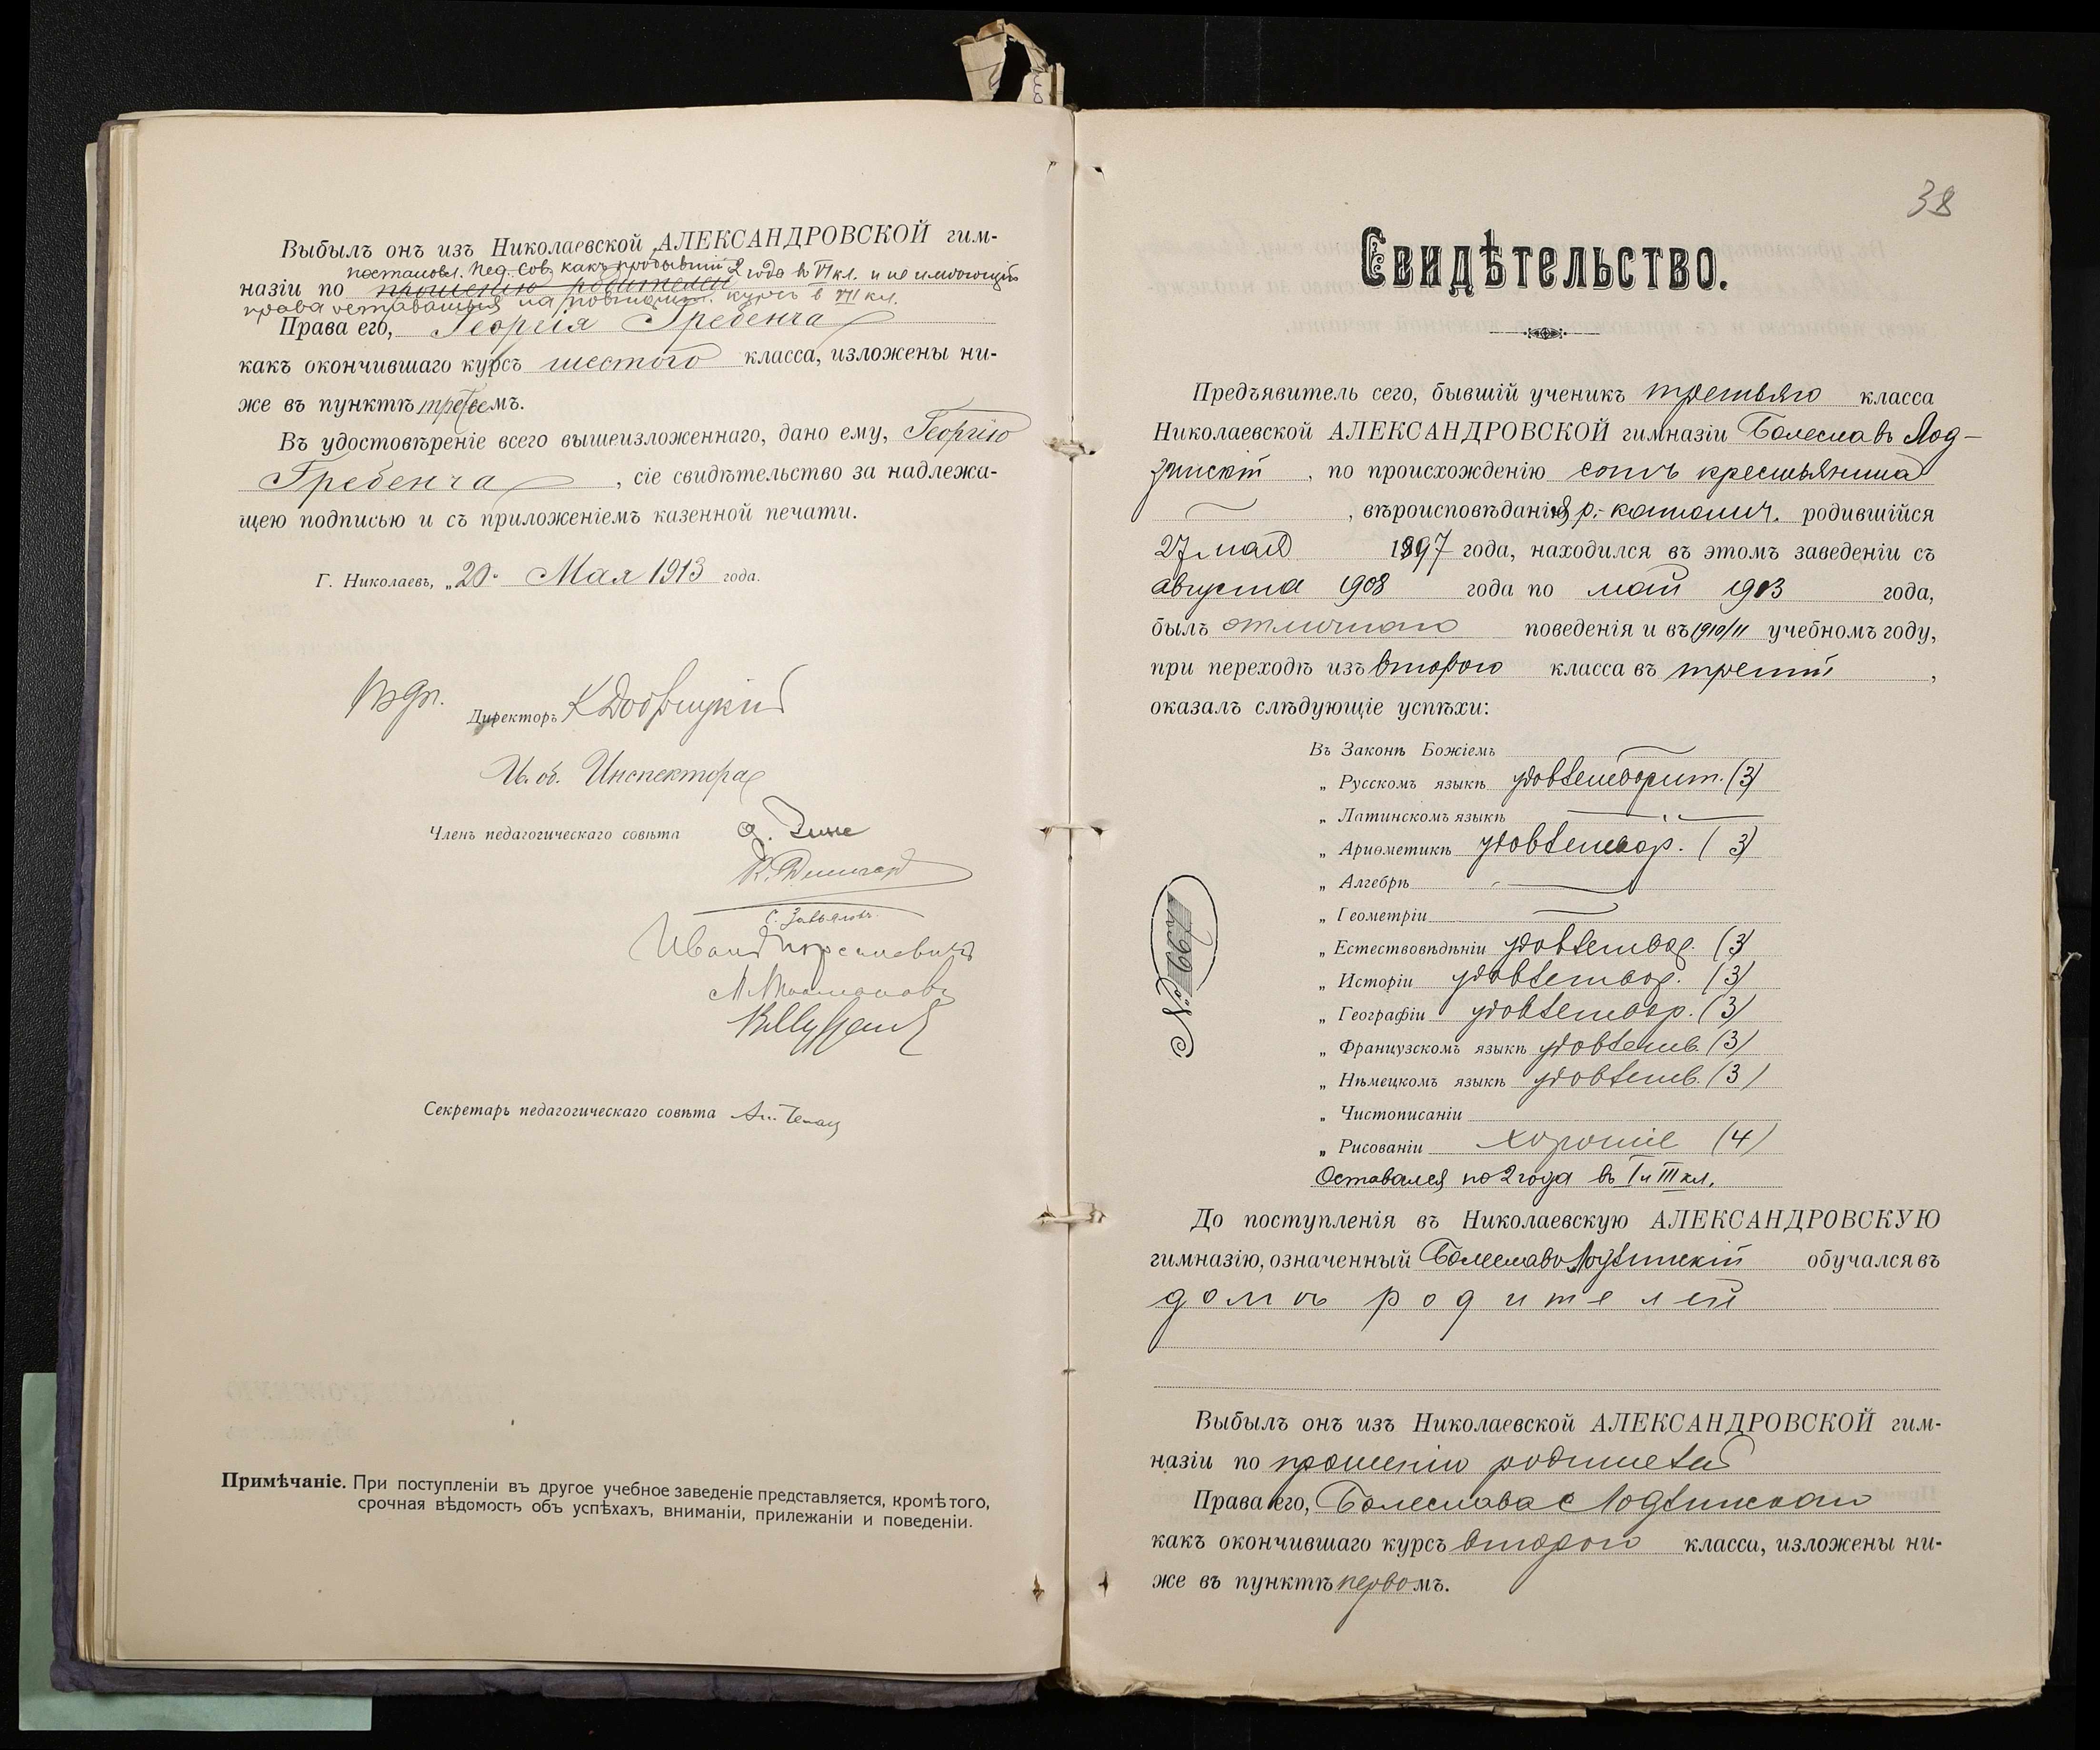 Выбылъ онъ изъ Николаевской АЛЕКСАНДРОВСКОЙ гим-
постановл. пед. сов. какъ пробывший 2 года в VI кл. и не имеющій
назіи по прошенію родителей
права оставаться на повторит. курсъ в VI кл.
Права его, Георгія Гребенча
какъ окончившаго курсъ шестого класса, изложены ни-
же въ пунктѣ третьемъ.
Въ удостовѣреніе всего вышеизложеннаго, дано ему, Георгію
Гребенча, сіе свидѣтельство за надлежа-
щею подписью и съ приложеніемъ казенной печати.
Г. Николаевъ, „20" Мая 1913 года.
Директоръ
И. об. Инспектора
Членъ педагогическаго совѣта
С. Завьяловъ
Секретарь педагогическаго совѣта
Примѣчаніе. При поступленіи въ другое учебное заведеніе представляется, кромѣ того,
срочная вѣдомость объ успѣхахъ, вниманіи, прилежаніи и поведеніи.
38
Свидѣтельство.
Предъявитель сего, бывшій ученикъ третьяго класса
Николаевской АЛЕКСАНДРОВСКОЙ гимназіи Болеславъ Лод-
зинскій, по происхожденію сынъ крестьянина
, вѣроисповѣданія р.-католич. родившійся
27 мая 1897 года, находился въ этомъ заведеніи съ
августа 1908 года по май 1913 года,
былъ отличнаго поведенія и въ 1910/11 учебномъ году,
при переходѣ изъ второго класса въ третій,
оказалъ слѣдующіе успѣхи:
Въ Законѣ Божіемъ
„ Русскомъ языкѣ удовлетворит. (3)
„ Латинскомъ языкѣ
„ Ариѳметикѣ удовлетвор. (3)
„ Алгебрѣ
„ Геометріи
„ Естествовѣдѣніи удовлетвор. (3)
„ Исторіи удовлетвор. (3)
„ Географіи удовлетвор. (3)
„ Французскомъ языкѣ удовлетв. (3)
„ Нѣмецкомъ языкѣ удовлетв. (3)
„ Чистописаніи
„ Рисованіи хорошіе (4)
Оставался по 2 года въ I и III кл.
№ 667
До поступленія въ Николаевскую АЛЕКСАНДРОВСКУЮ
гимназію, означенный Болеславъ Лодзинскій обучался въ
домѣ родителей
Выбылъ онъ изъ Николаевской АЛЕКСАНДРОВСКОЙ гим-
назіи по прошенію родителей
Права его, Болеслава Лодзинскаго
какъ окончившаго курсъ второго класса, изложены ни-
же въ пунктѣ первомъ.